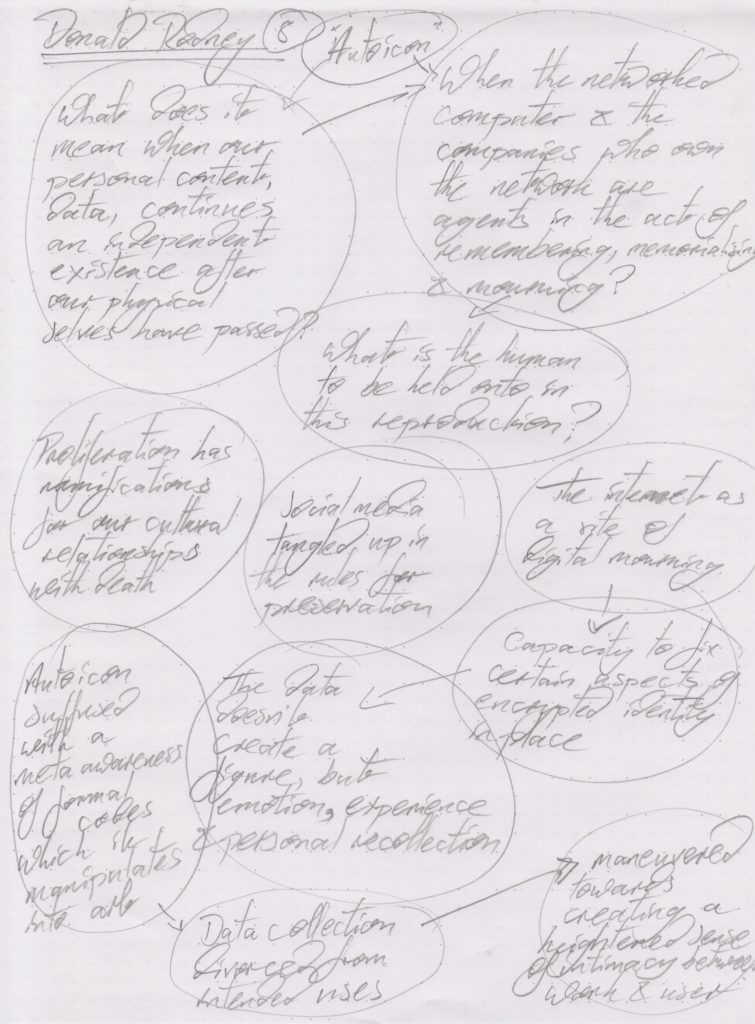 Donald Rodney 8
"Autoicon"
What does it
mean when our
personal content,
data, continues
an independent
existence after
our physical
selves have passed?
When the networked
computer & the
companies who own
the network are
agents in the act of
remembering, memorialising
& mourning?
What is the human
to be held onto in
this reproduction?
Proliferation has
ramifications
for our cultural
relationships
with death
Social media
tangled up in
the rules for
preservation
The internet as
a site of
digital mourning
Capacity to fix
certain aspects of
encrypted identity
in place
The data
doesn't
create a
figure, but
emotion, experience
& personal recollection
Autoicon
suffused
with a
meta awareness
of formal
codes
which it
manipulates
into art
Data collection
divorced from
intended uses
maneuvered
towards
creating a
heightened sense
of intimacy between
work & user